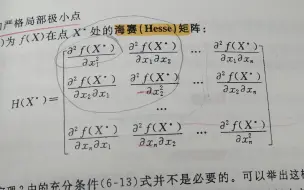 严格局部极小点
)为 f(X)在点 X* 处的海赛(Hesse)矩阵:
H(X*)=
∂²f(X*)/∂x₁² ∂²f(X*)/∂x₁∂x₂ … ∂²f(X*)/∂x₁∂xₙ
∂²f(X*)/∂x₂∂x₁ ∂²f(X*)/∂x₂² … ∂²f(X*)/∂x₂∂xₙ
… … …
∂²f(X*)/∂xₙ∂x₁ ∂²f(X*)/∂xₙ∂x₂ … ∂²f(X*)/∂xₙ²
2中的充分条件(6-13)式并不是必要的。可以举出这